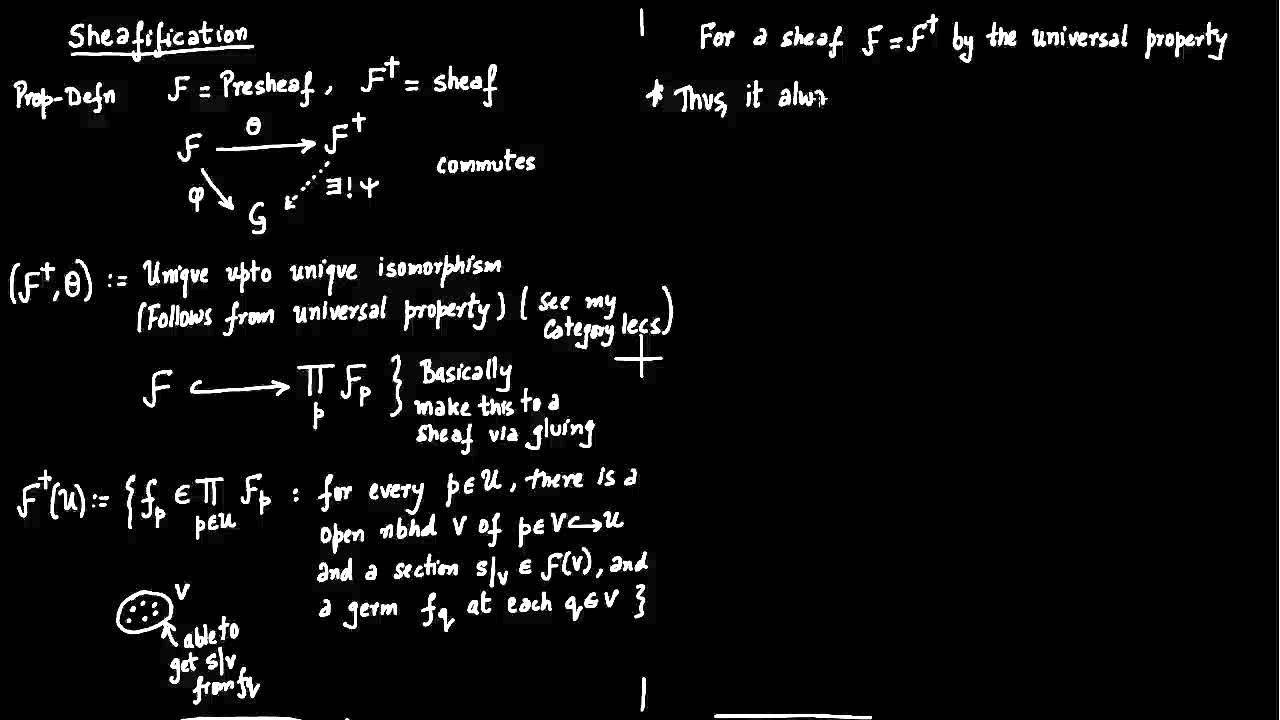 Sheafification
Prop-Defn F = Presheaf, F† = sheaf
F θ→ F†
φ ∃! ψ commutes
G
(F†, θ) := Unique upto unique isomorphism
(Follows from universal property) (see my
category lecs)
F ↪ ∏_p F_p } Basically
make this to a
sheaf via gluing
F†(U) := { f_p ∈ ∏_{p∈U} F_p : for every p∈U, there is a
open nbhd V of p∈V↪U
and a section s|_V ∈ F(V), and
a germ f_q at each q∈V }
V
able to
get s|_V
from f_q
For a sheaf F = F† by the universal property
* Thus, it alwa